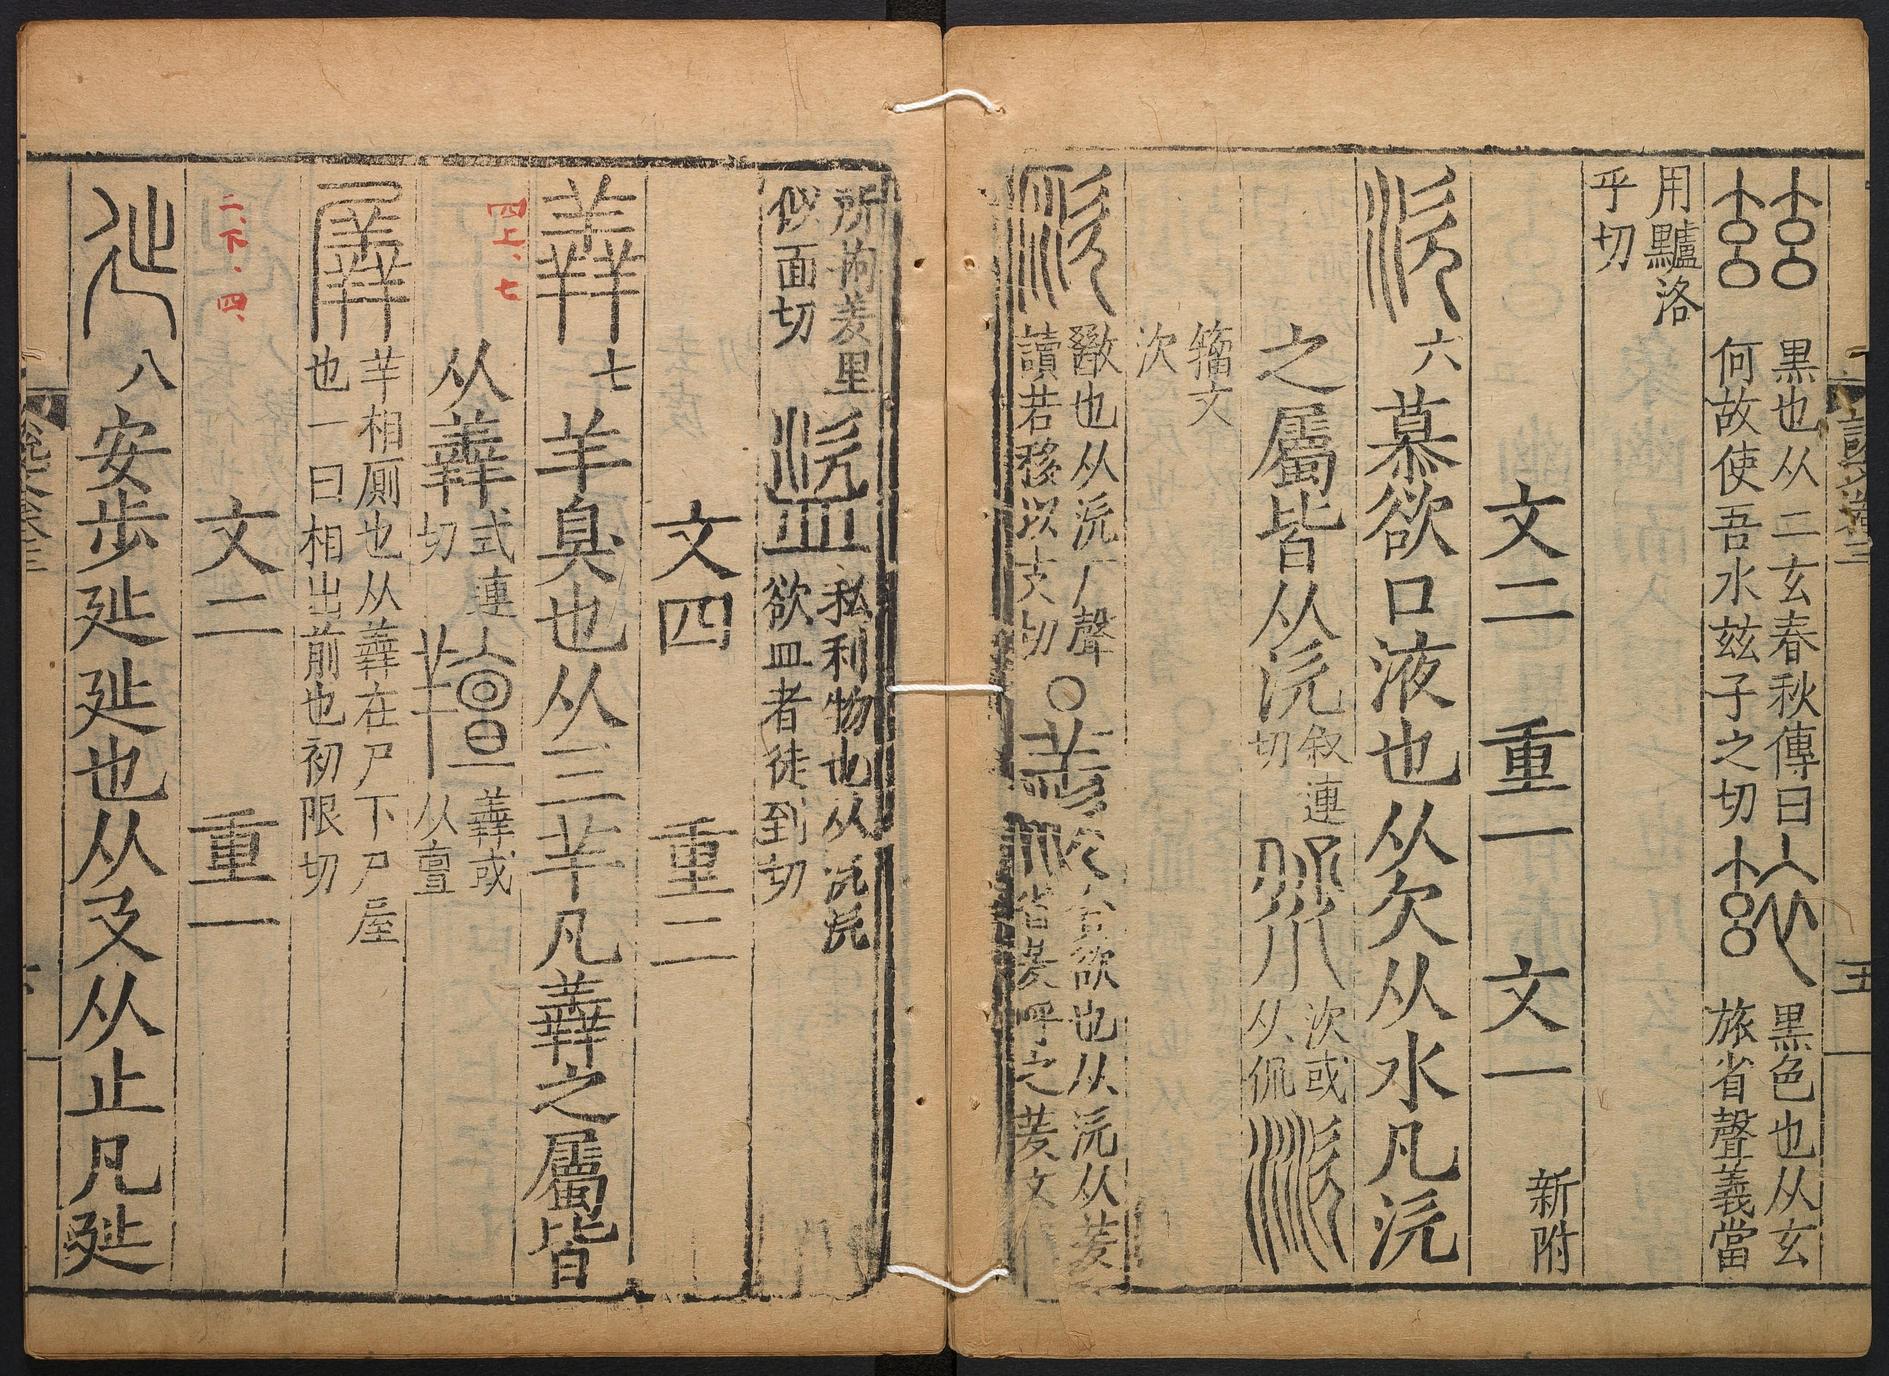 黑也从二玄春秋傳曰
何故使吾水玆子之切
黑色也从玄
旅省聲義當
用黸洛
乎切
文二 重一 文一 新附
六 慕欲口液也从欠从水凡㳄
之屬皆从㳄 叙連切
次或从侃
籒文次
歠也从㳄厂聲
讀若移以支切
○
欲也从㳄从羑
省羑呼之羑文
所拘羑里
似面切
私利物也从㳄㳄
欲皿者徒到切
文四 重二
羴 七 羊臭也从三羊凡羴之屬皆
四上、七
从羴 式連切
羴或从亶
羼 羊相厠也从羴在尸下尸屋
也一曰相出前也初限切
二、下、四、
文二 重一
八 安步㢟㢟也从廴从止凡㢟